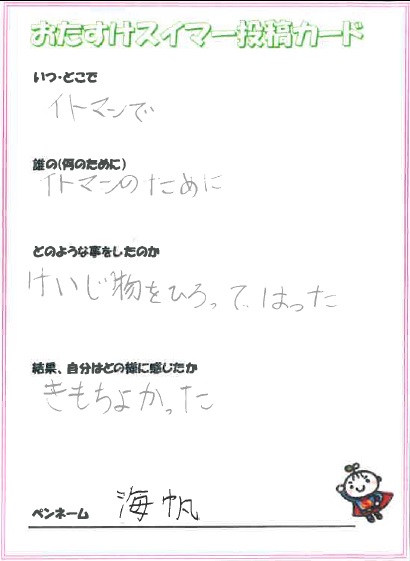 おたすけスイマー投稿カード
いつ・どこで
イトマンで
誰の(何のために)
イトマンのために
どのような事をしたのか
けいじ物をひろって はった
結果、自分はどの様に感じたか
きもちよかった
ペンネーム 海帆